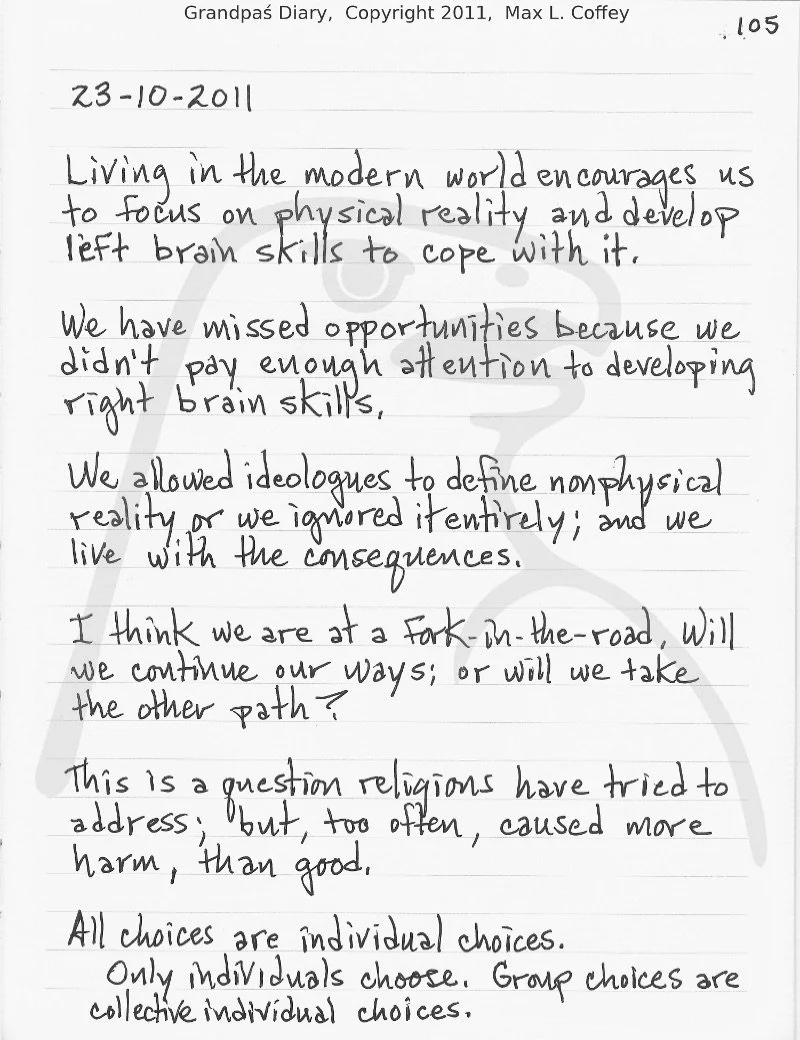 Grandpaś Diary, Copyright 2011, Max L. Coffey
105
23-10-2011
Living in the modern world encourages us
to focus on physical reality and develop
left brain skills to cope with it.
We have missed opportunities because we
didn't pay enough attention to developing
right brain skills.
We allowed ideologues to define nonphysical
reality or we ignored it entirely; and we
live with the consequences.
I think we are at a fork-in-the-road. Will
we continue our ways; or will we take
the other path?
This is a question religions have tried to
address; but, too often, caused more
harm, than good.
All choices are individual choices.
Only individuals choose. Group choices are
collective individual choices.